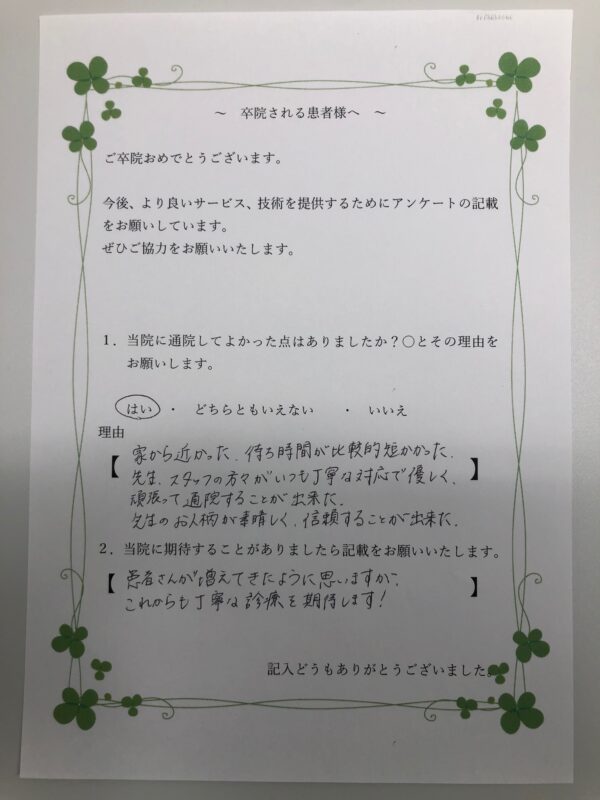 ～　卒院される患者様へ　～
ご卒院おめでとうございます。
今後、より良いサービス、技術を提供するためにアンケートの記載
をお願いしています。
ぜひご協力をお願いいたします。
１．当院に通院してよかった点はありましたか？〇とその理由を
お願いします。
はい　・　どちらともいえない　・　いいえ
理由
【家から近かった、待ち時間が比較的短かかった、
先生、スタッフの方々がいつも丁寧な対応で優しく、
頑張って通院することが出来た。
先生のお人柄が素晴しく、信頼することが出来た。】
２．当院に期待することがありましたら記載をお願いいたします。
【患者さんが増えてきたように思いますが、
これからも丁寧な診療を期待します！】
記入どうもありがとうございました。